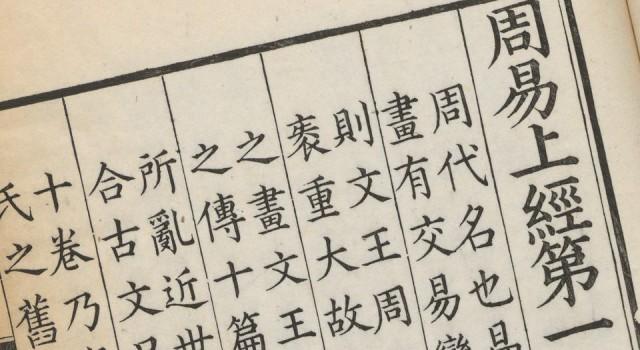 周易上經第一
周代名也
畫有交易
則文王周
袠重大故
之畫文王
之傳十篇
所亂近世
合古文
十卷乃
氏之舊